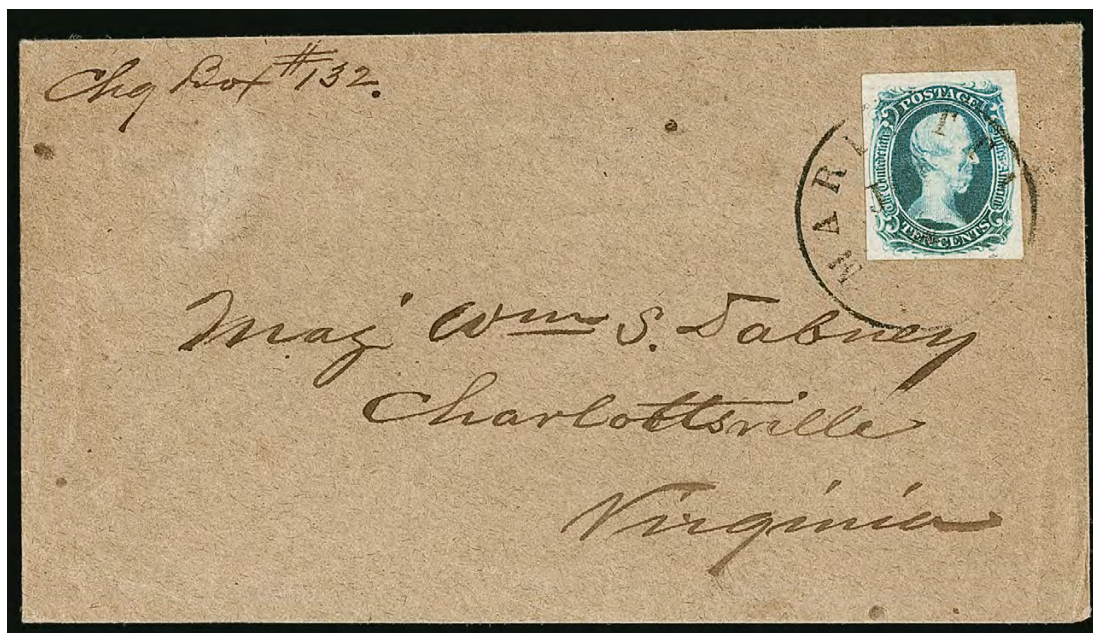 Chg Box #132.
POSTAGE
The Confederate States of America
TEN CENTS
MARIETTA
Maj Wm S. Dabney
Charlottsville
Virginia